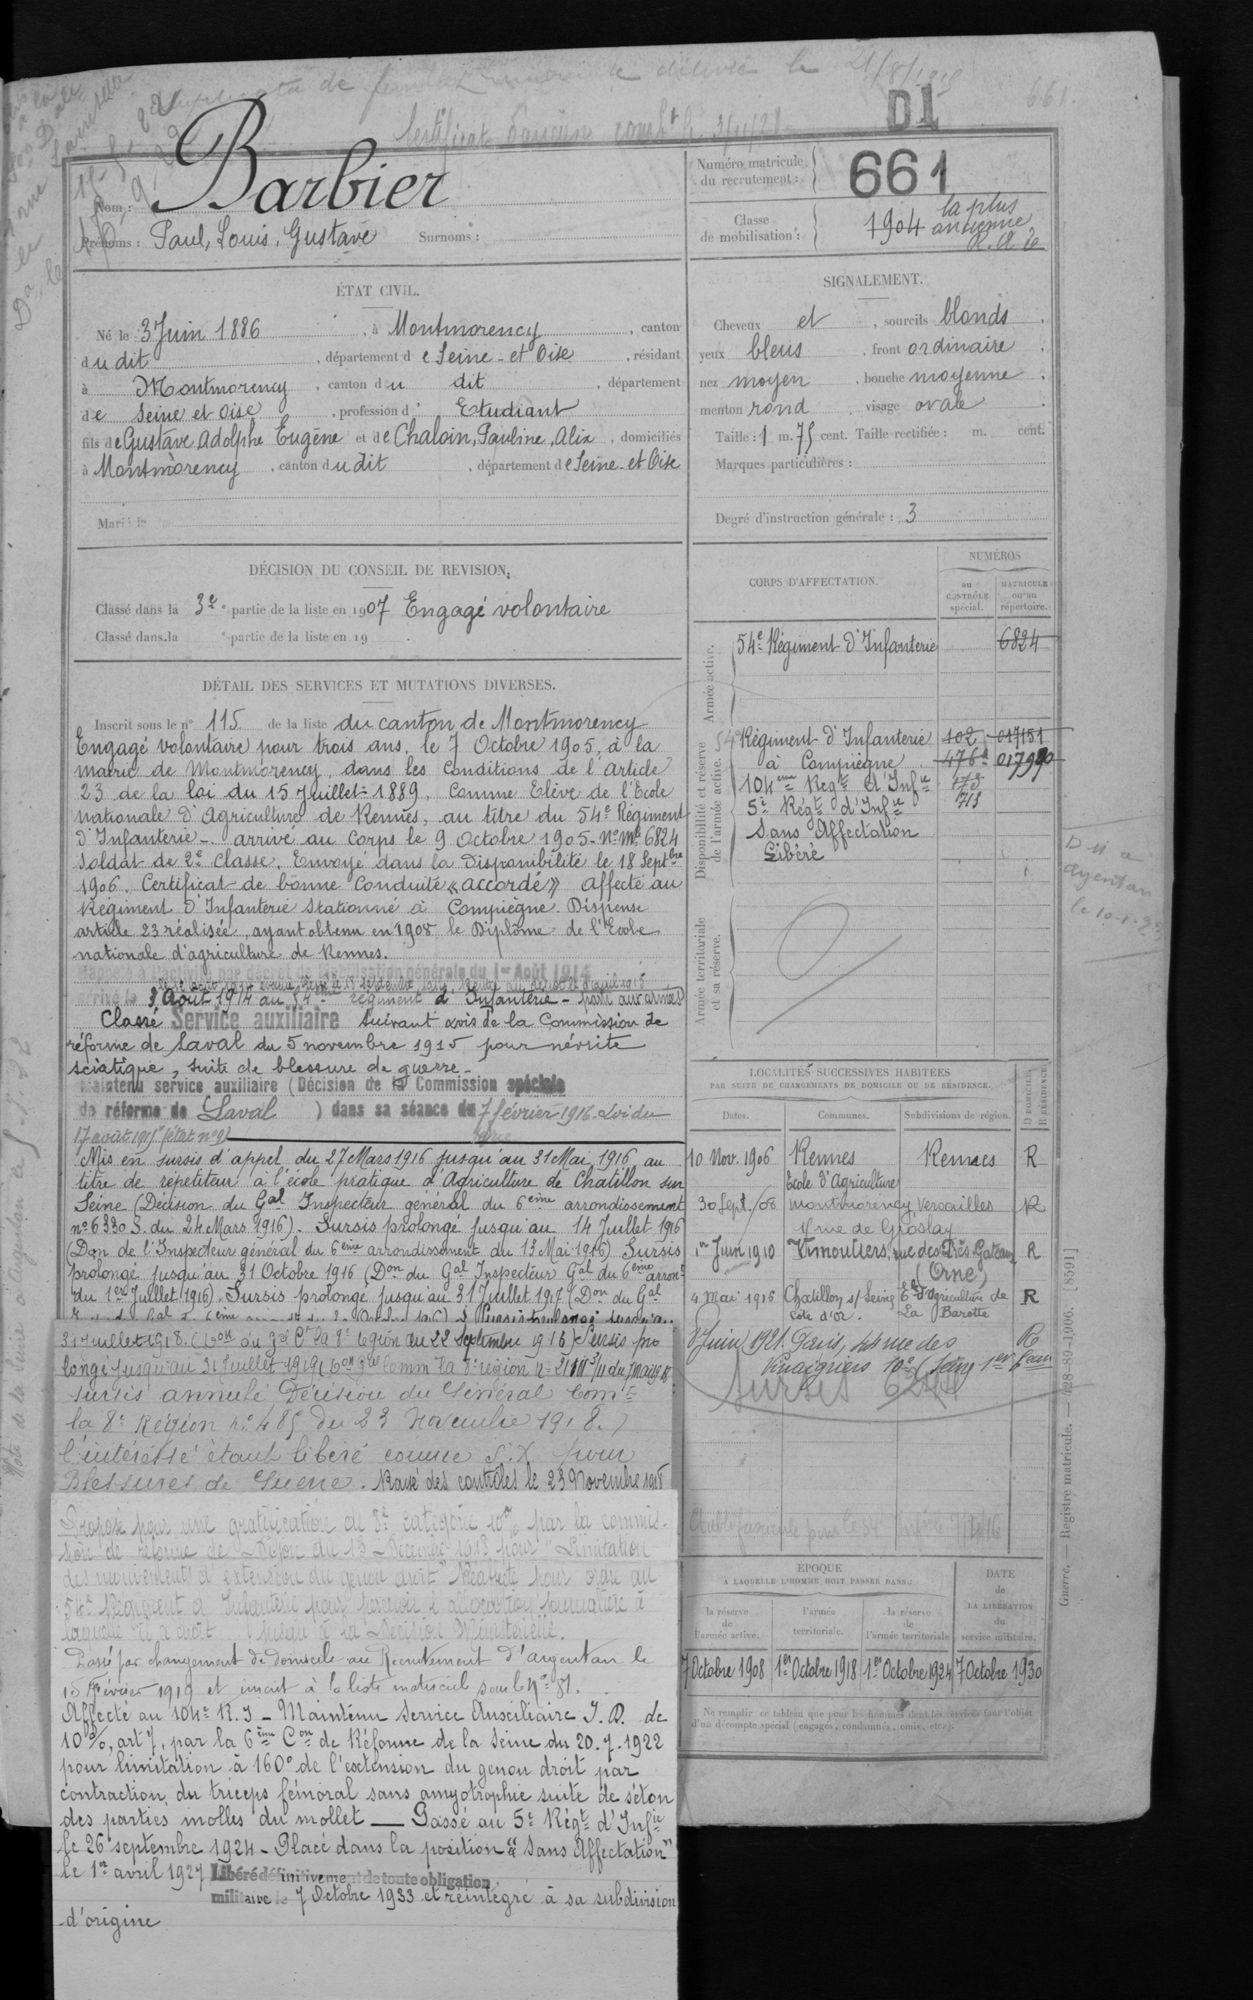 661
D1
Barbier
Nom :
Prénoms : Paul, Louis, Gustave Surnoms :
Numéro matricule
du recrutement : 661
Classe
de mobilisation : 1904 la plus
ancienne
ÉTAT CIVIL.
Né le 3 Juin 1886, à Montmorency, canton
du dit, département de Seine-et-Oise, résidant
à Montmorency, canton du dit, département
de Seine et Oise, profession d' Etudiant
fils de Gustave Adolphe Eugène et de Chaloin, Pauline, Alix, domiciliés
à Montmorency, canton du dit, département de Seine-et-Oise
Marié le
SIGNALEMENT.
Cheveux et, sourcils blonds.
yeux bleus, front ordinaire.
nez moyen, bouche moyenne.
menton rond visage ovale
Taille : 1 m. 75 cent. Taille rectifiée : m. cent.
Marques particulières :
Degré d'instruction générale : 3
DÉCISION DU CONSEIL DE REVISION.
Classé dans la 3e partie de la liste en 1907 Engagé volontaire
Classé dans la e partie de la liste en 19 .
DÉTAIL DES SERVICES ET MUTATIONS DIVERSES.
Inscrit sous le n° 115 de la liste du canton de Montmorency
Engagé volontaire pour trois ans, le 7 Octobre 1905, à la
mairie de Montmorency, dans les conditions de l'article
23 de la loi du 15 Juillet 1889, comme Elève de l'Ecole
nationale d'Agriculture de Rennes, au titre du 54e Régiment
d'Infanterie - arrivé au corps le 9 Octobre 1905 - No Mle 6824
Soldat de 2e classe. Envoyé dans la disponibilité le 18 Septbre
1906. Certificat de bonne conduite « accordé » Affecté au
Régiment d'Infanterie stationné à Compiègne. Dispense
article 23 réalisée, ayant obtenu en 1908 le Diplôme de l'Ecole
nationale d'agriculture de Rennes.
Rappelé à l'activité par décret de mobilisation générale du 1er Août 1914
arrivé le 3 Août 1914 au 54ème régiment d'Infanterie - parti aux armées
Classé Service auxiliaire suivant avis de la Commission de
réforme de Laval du 5 novembre 1915 pour névrite
sciatique, suite de blessure de guerre -
Maintenu service auxiliaire (Décision de la Commission spéciale
de réforme de Laval ) dans sa séance du 7 février 1916 Loi du
17 août 1915 (état n° 9)
Mis en sursis d'appel du 27 Mars 1916 jusqu'au 31 Mai 1916 au
titre de répétiteur à l'école pratique d'Agriculture de Chatillon sur
Seine (Décision du Gal Inspecteur général du 6ème arrondissement
n° 6330 S. du 24 Mars 1916). Sursis prolongé jusqu'au 14 Juillet 1916
(Don de l'Inspecteur général du 6ème arrondissement du 13 Mai 1916) Sursis
prolongé jusqu'au 31 Octobre 1916 (Don du Gal Inspecteur Gal du 6ème arront
du 1er Juillet 1916). Sursis prolongé jusqu'au 31 Juillet 1917 (Don du Gal
31 Juillet 1918. (Don du Gal Ct la 8e région du 22 Septembre 1916) Sursis pro
longé jusqu'au 31 Juillet 1919
sursis annulé Décision du Général Comt
la 8e Région n° 485 du 23 Novembre 1918.
l'intéressé étant libéré comme S.X pour
Blessures de Guerre. Rayé des contrôles le 23 Novembre 1918
Proposé pour une gratification de 8e catégorie 10% par la commis-
sion de réforme de Dijon du 13 Décembre 1918 pour "Limitation
des mouvements d'extension du genou droit" Réaffecté pour ordre au
54e Régiment d'Infanterie pour percevoir l'allocation journalière à
laquelle il a droit jusqu'à la Décision Ministérielle.
Passé par changement de domicile au Recrutement d'Argentan le
15 Février 1919 et inscrit à la liste matricule sous le No 81.
Affecté au 104e R.I - Maintenu service Auxiliaire I.P. de
10%, art 7, par la 6ème Con de Réforme de la Seine du 20.7.1922
pour limitation à 160° de l'extension du genou droit par
contraction du triceps fémoral sans amyotrophie suite de séton
des parties molles du mollet — Passé au 5e Régt d'Infie
le 26 septembre 1924 - Placé dans la position "Sans Affectation"
le 1er avril 1927 Libéré définitivement de toute obligation
militaire le 7 Octobre 1933 et réintégré à sa subdivision
d'origine
CORPS D'AFFECTATION.
NUMÉROS
au
CONTRÔLE
spécial.
MATRICULE
ou au
répertoire.
Armée active.
54e Régiment d'Infanterie 6824
Disponibilité et réserve
de l'armée active.
54e Régiment d'Infanterie 102 017151
à Compiègne 476 017990
104eme Régt d'Infie 178
5e Régt d'Infie 713
Sans Affectation
Libéré
Armée territoriale
et sa réserve.
LOCALITÉS SUCCESSIVES HABITÉES
PAR SUITE DE CHANGEMENTS DE DOMICILE OU DE RÉSIDENCE.
Dates. Communes. Subdivisions de région. D DOMICILE R RÉSIDENCE
10 Nov. 1906 Rennes Rennes R
Ecole d'Agriculture
30 Sept./08 Montmorency, Versailles R
rue de Groslay
1er Juin 1910 Vimoutiers, rue des Près Gateaux R
(Orne)
4 Mai 1916 Chatillon s/ Seine Ele d'Agriculture de R
Cote d'Or. La Barotte
8 Juin 1921 Paris, 44 rue des R
Vinaigriers 10e
sursis
EPOQUE
À LAQUELLE L'HOMME DOIT PASSER DANS :
la réserve
de
l'armée active.
l'armée
territoriale.
la réserve
de
l'armée territoriale
DATE
de
LA LIBÉRATION
du
service militaire.
7 Octobre 1908 1er Octobre 1918 1er Octobre 1924 7 Octobre 1930
Ne remplir ce tableau que pour les hommes dont les services font l'objet
d'un décompte spécial (engagés, condamnés, omis, etc.).
Guerre. — Registre matricule. — 128-89-1906. [8591]
Argentan
le 10-1-23